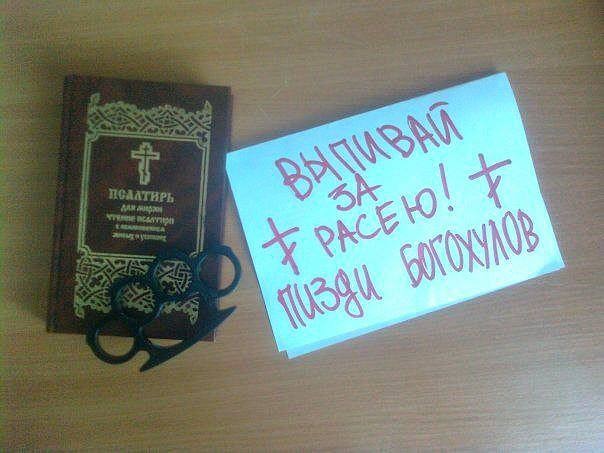 ПСАЛТИРЬ
ДЛЯ МИРЯН
ЧТЕНИЕ ПСАЛТИРИ
С ПОМИНОВЕНИЕМ
ЖИВЫХ И УСОПШИХ
ВЫПИВАЙ
ЗА
РАСЕЮ!
ПИЗДИ БОГОХУЛОВ